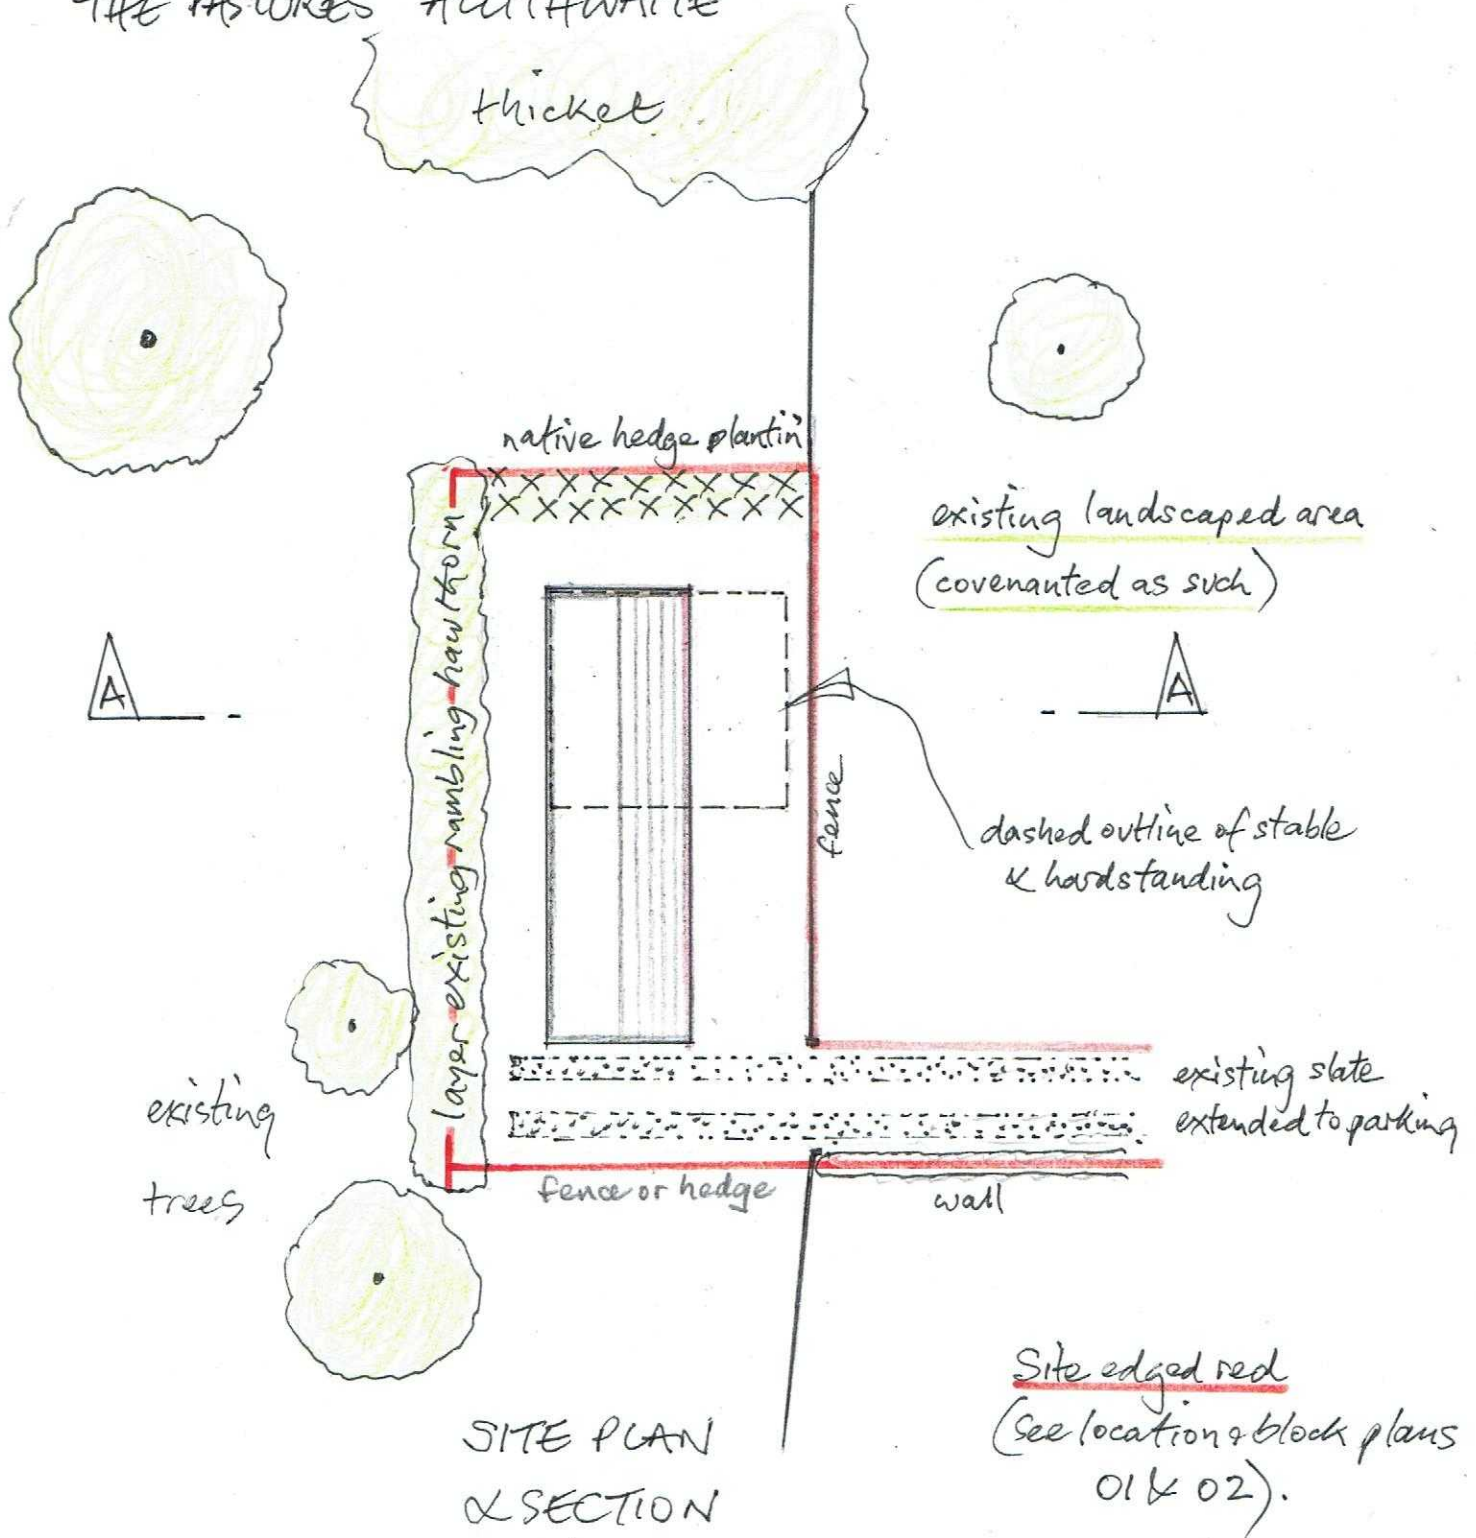 THE PASTURES ALLITHWAITE
thicket
native hedge plantin
existing landscaped area
(covenanted as such)
layer existing rambling hawthorn
A
A
fence
dashed outline of stable
& hardstanding
existing slate
extended to parking
existing
trees
fence or hedge
wall
Site edged red
(see location & block plans
01 & 02).
SITE PLAN
& SECTION